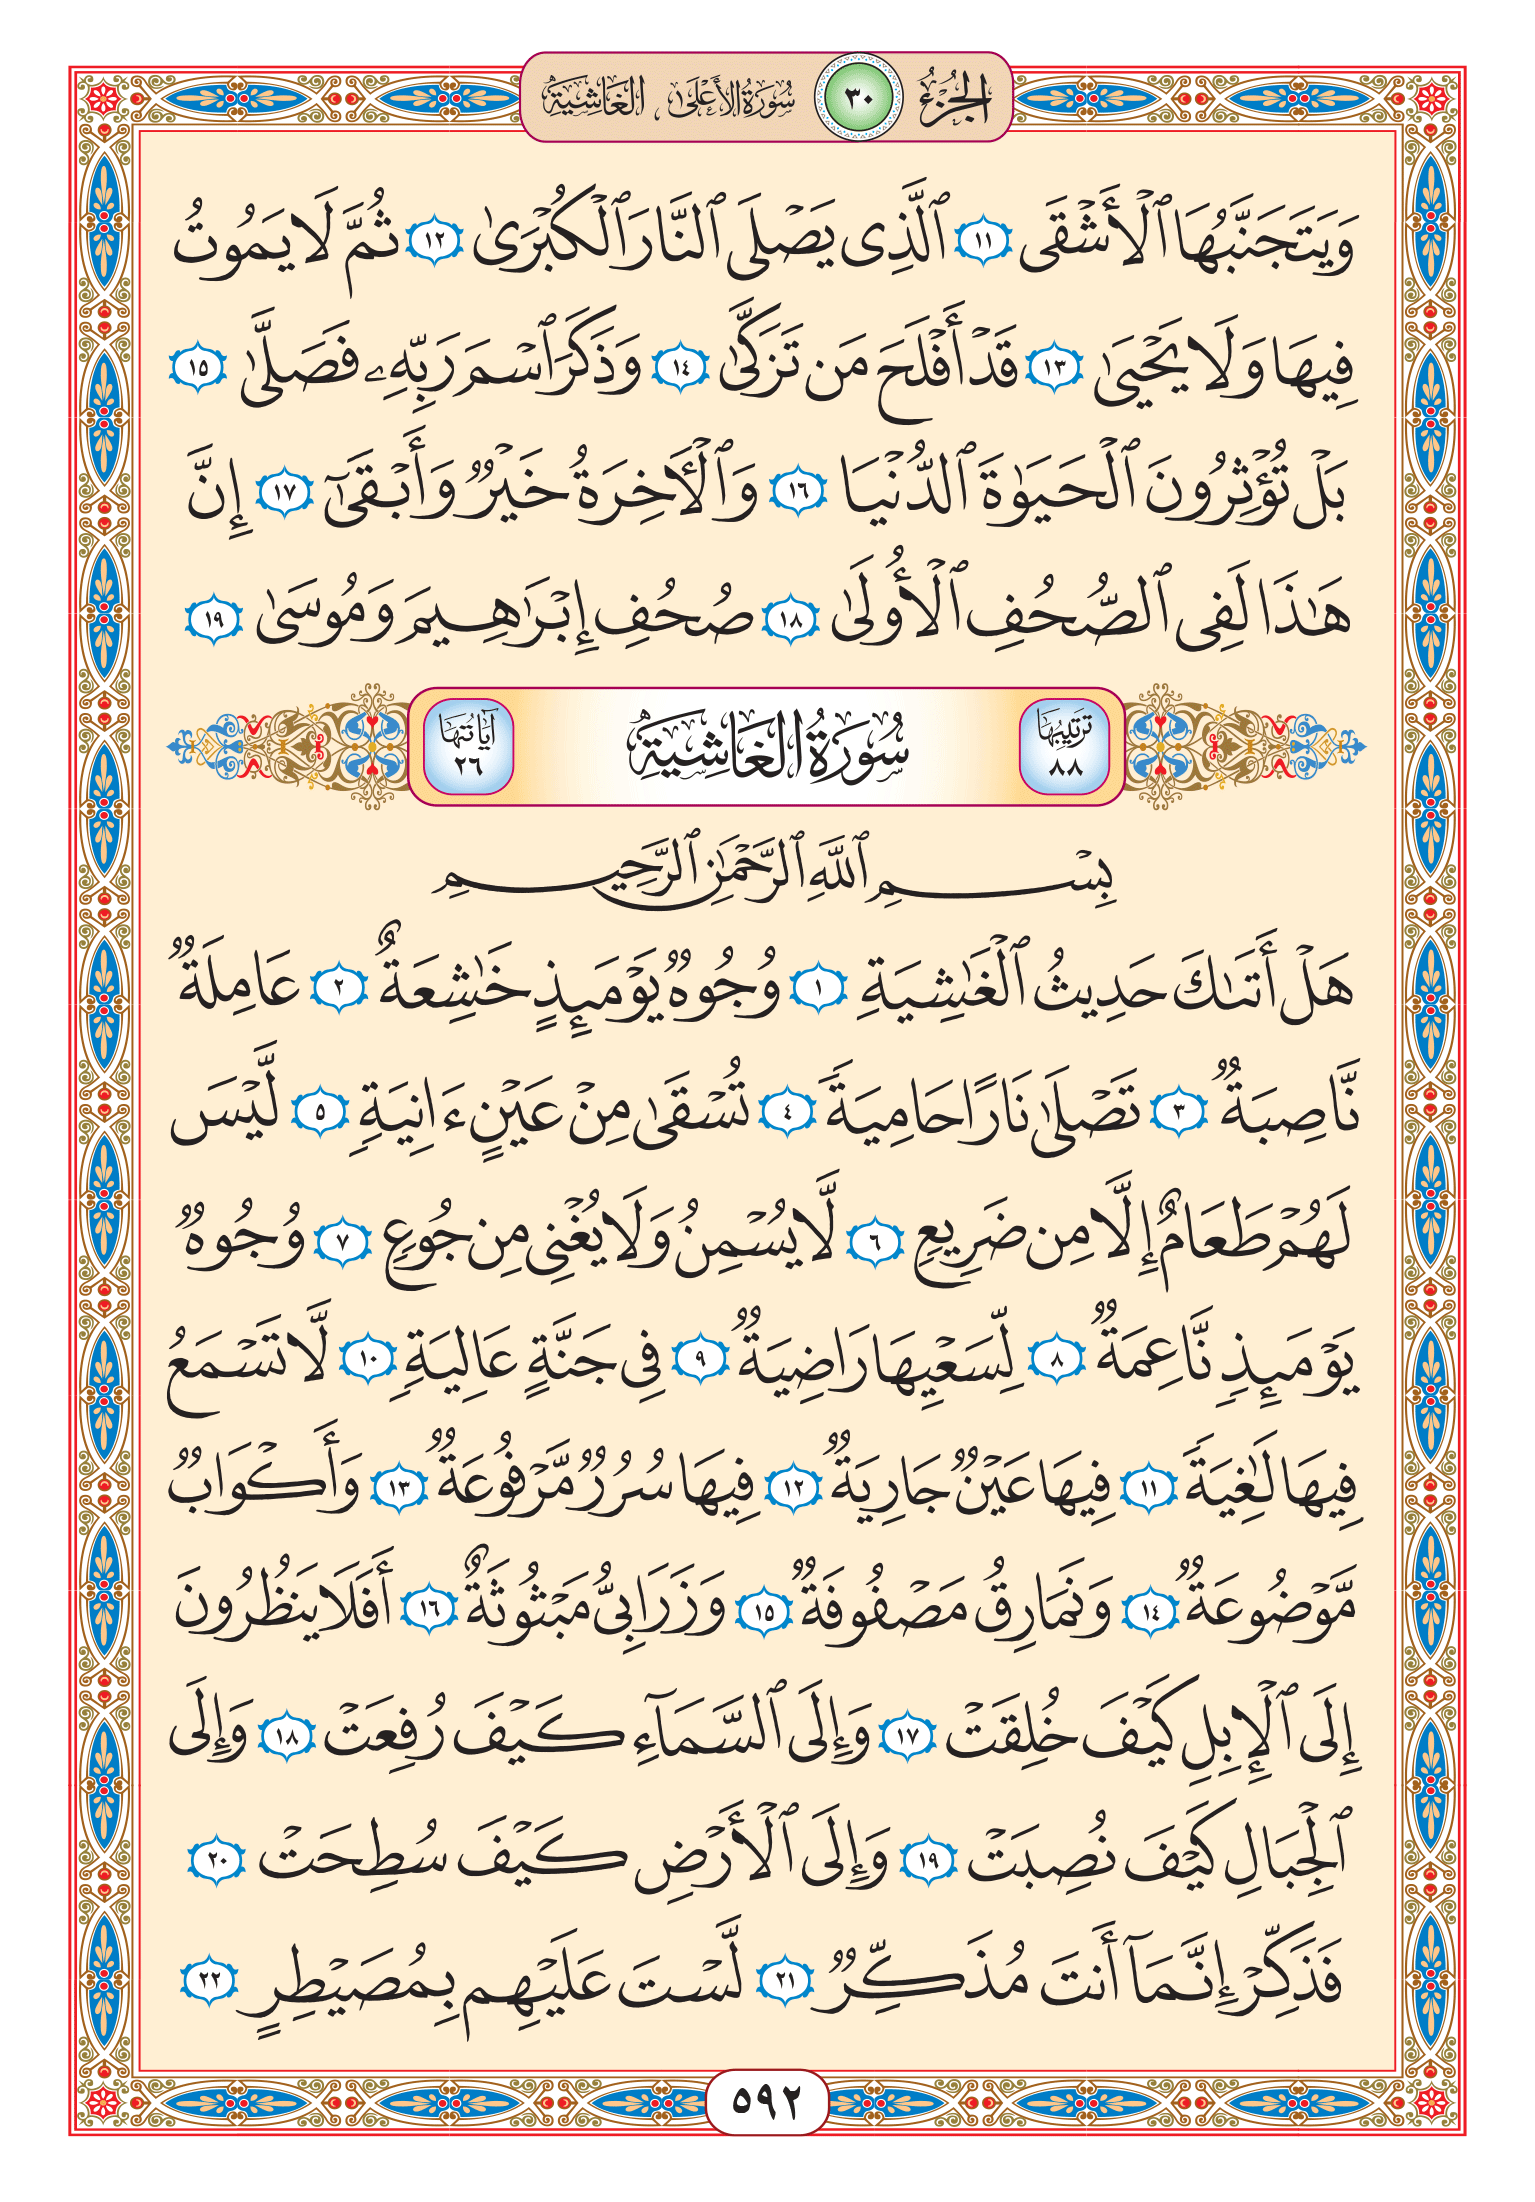 الجزء ٣٠ سورة الأعلى ، الغاشية
وَيَتَجَنَّبُهَا ٱلْأَشْقَى ١١ ٱلَّذِى يَصْلَى ٱلنَّارَ ٱلْكُبْرَىٰ ١٢ ثُمَّ لَا يَمُوتُ
فِيهَا وَلَا يَحْيَىٰ ١٣ قَدْ أَفْلَحَ مَن تَزَكَّىٰ ١٤ وَذَكَرَ ٱسْمَ رَبِّهِۦ فَصَلَّىٰ ١٥
بَلْ تُؤْثِرُونَ ٱلْحَيَوٰةَ ٱلدُّنْيَا ١٦ وَٱلْأَخِرَةُ خَيْرٌ وَأَبْقَىٰٓ ١٧ إِنَّ
هَٰذَا لَفِى ٱلصُّحُفِ ٱلْأُولَىٰ ١٨ صُحُفِ إِبْرَٰهِيمَ وَمُوسَىٰ ١٩
ترتيبها ٨٨ سُورَةُ الغَاشِيَةِ آيَاتُهَا ٢٦
بِسْمِ ٱللَّهِ ٱلرَّحْمَٰنِ ٱلرَّحِيمِ
هَلْ أَتَىٰكَ حَدِيثُ ٱلْغَٰشِيَةِ ١ وُجُوهٌ يَوْمَئِذٍ خَٰشِعَةٌ ٢ عَامِلَةٌ
نَّاصِبَةٌ ٣ تَصْلَىٰ نَارًا حَامِيَةً ٤ تُسْقَىٰ مِنْ عَيْنٍ ءَانِيَةٍ ٥ لَّيْسَ
لَهُمْ طَعَامٌ إِلَّا مِن ضَرِيعٍ ٦ لَّا يُسْمِنُ وَلَا يُغْنِى مِن جُوعٍ ٧ وُجُوهٌ
يَوْمَئِذٍ نَّاعِمَةٌ ٨ لِّسَعْيِهَا رَاضِيَةٌ ٩ فِى جَنَّةٍ عَالِيَةٍ ١٠ لَّا تَسْمَعُ
فِيهَا لَٰغِيَةً ١١ فِيهَا عَيْنٌ جَارِيَةٌ ١٢ فِيهَا سُرُرٌ مَّرْفُوعَةٌ ١٣ وَأَكْوَابٌ
مَّوْضُوعَةٌ ١٤ وَنَمَارِقُ مَصْفُوفَةٌ ١٥ وَزَرَابِىُّ مَبْثُوثَةٌ ١٦ أَفَلَا يَنظُرُونَ
إِلَى ٱلْإِبِلِ كَيْفَ خُلِقَتْ ١٧ وَإِلَى ٱلسَّمَآءِ كَيْفَ رُفِعَتْ ١٨ وَإِلَى
ٱلْجِبَالِ كَيْفَ نُصِبَتْ ١٩ وَإِلَى ٱلْأَرْضِ كَيْفَ سُطِحَتْ ٢٠
فَذَكِّرْ إِنَّمَآ أَنتَ مُذَكِّرٌ ٢١ لَّسْتَ عَلَيْهِم بِمُصَيْطِرٍ ٢٢
٥٩٢